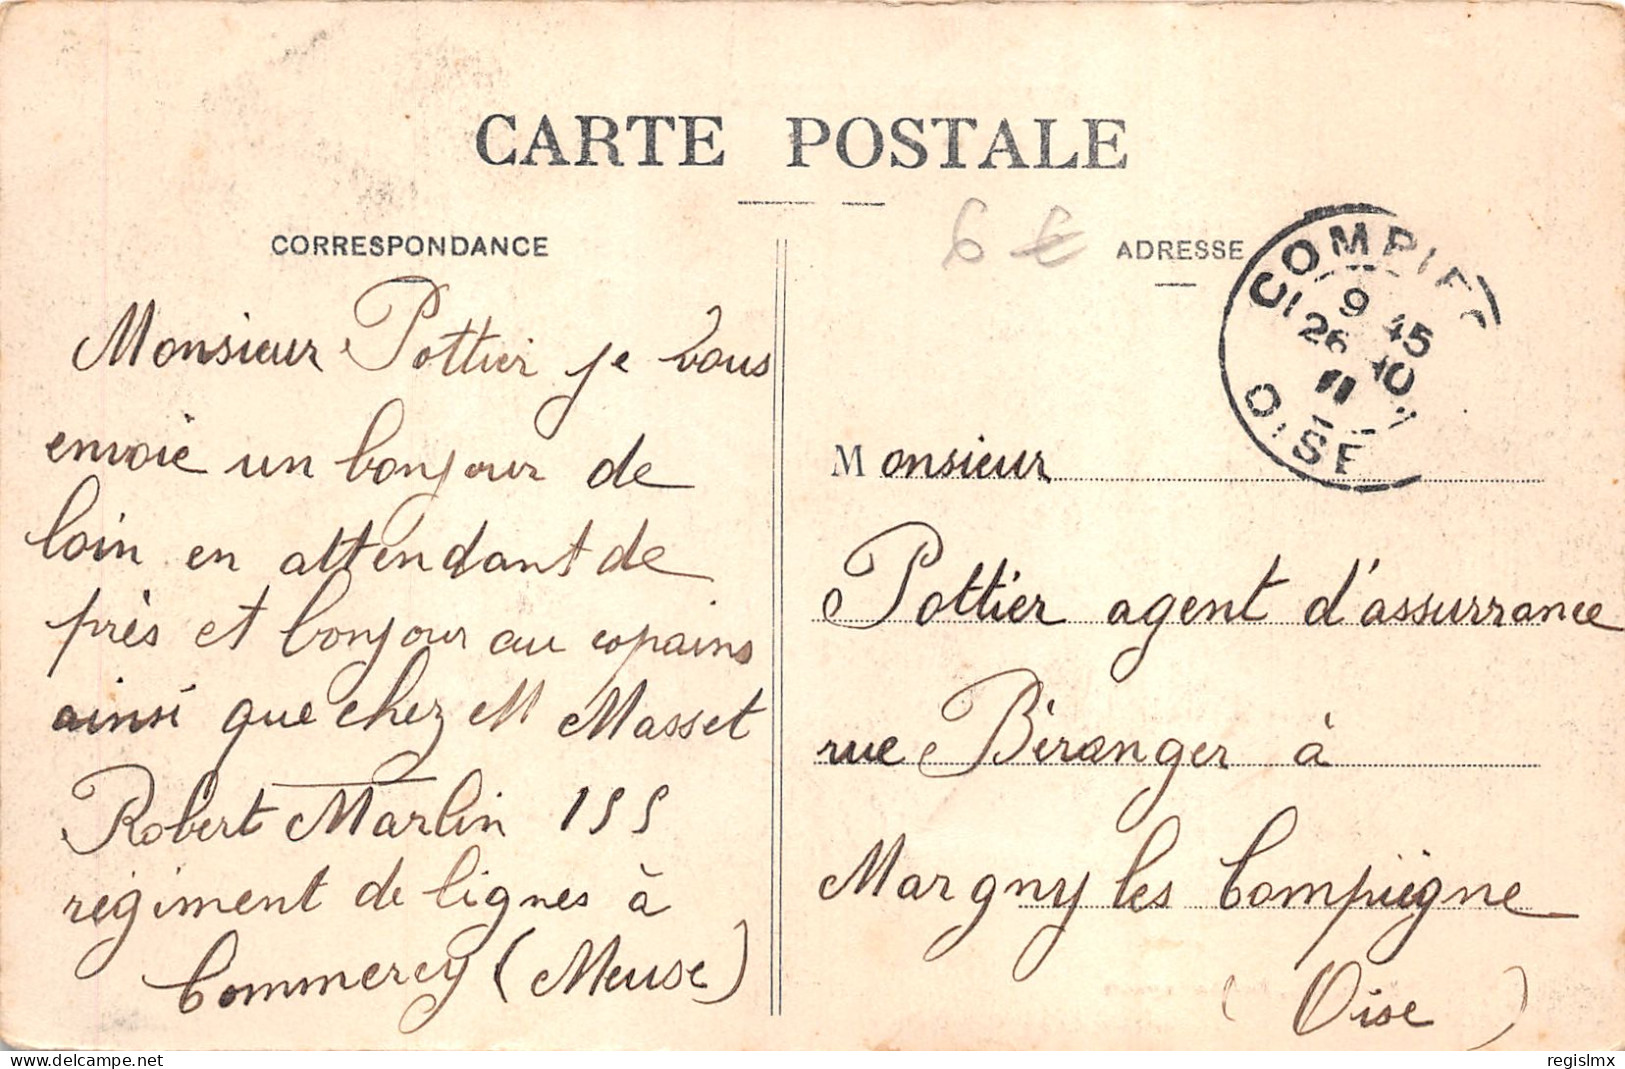 CARTE POSTALE
CORRESPONDANCE
6 €
ADRESSE
COMPIE
9 45
26 10
11
OISE
Monsieur Pottier je vous
envoie un bonjour de
loin en attendant de
près et bonjour au copains
ainsi que chez M Masset
Robert Martin 155
régiment de lignes à
Commercy (Meuse)
Monsieur
Pottier agent d'assurrance
rue Béranger à
Margny les Compiègne
(Oise)
regislmx